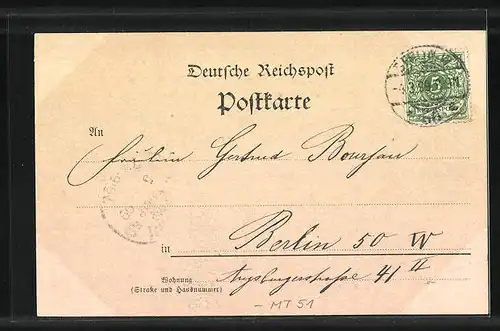 Deutsche Reichspost
Postkarte
An
Fräulein Gertrud Bourjau
in Berlin 50 W
Augsburgerstraße 41 II
Wohnung
(Straße und Hausnummer)
5
- MT 51